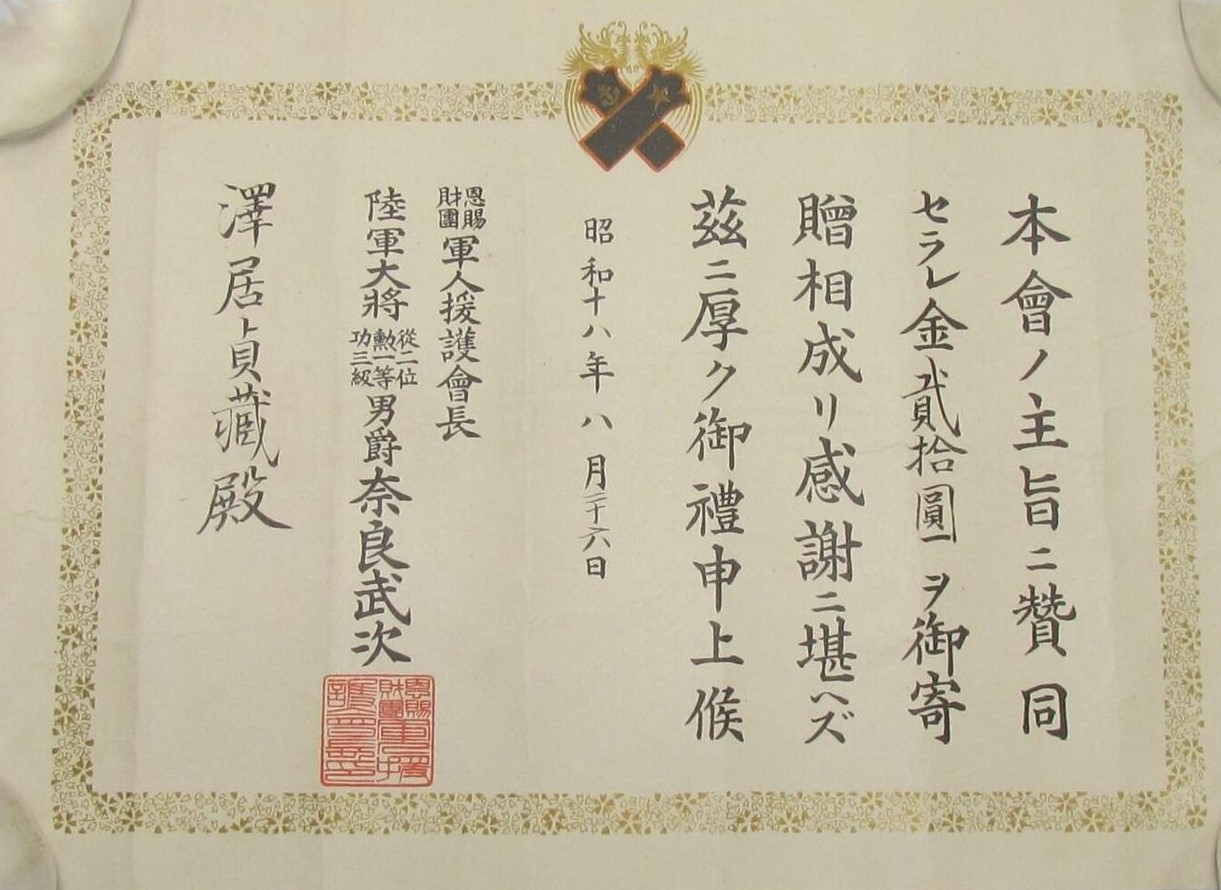 本會ノ主旨ニ贊同
セラレ金貳拾圓一ヲ御寄
贈相成リ感謝ニ堪ヘズ
茲ニ厚ク御禮申上候
昭和十八年八月二十六日
恩賜
財團
軍人援護會長
陸軍大將
從二位
勲一等
功三級
男爵奈良武次
澤居貞藏殿